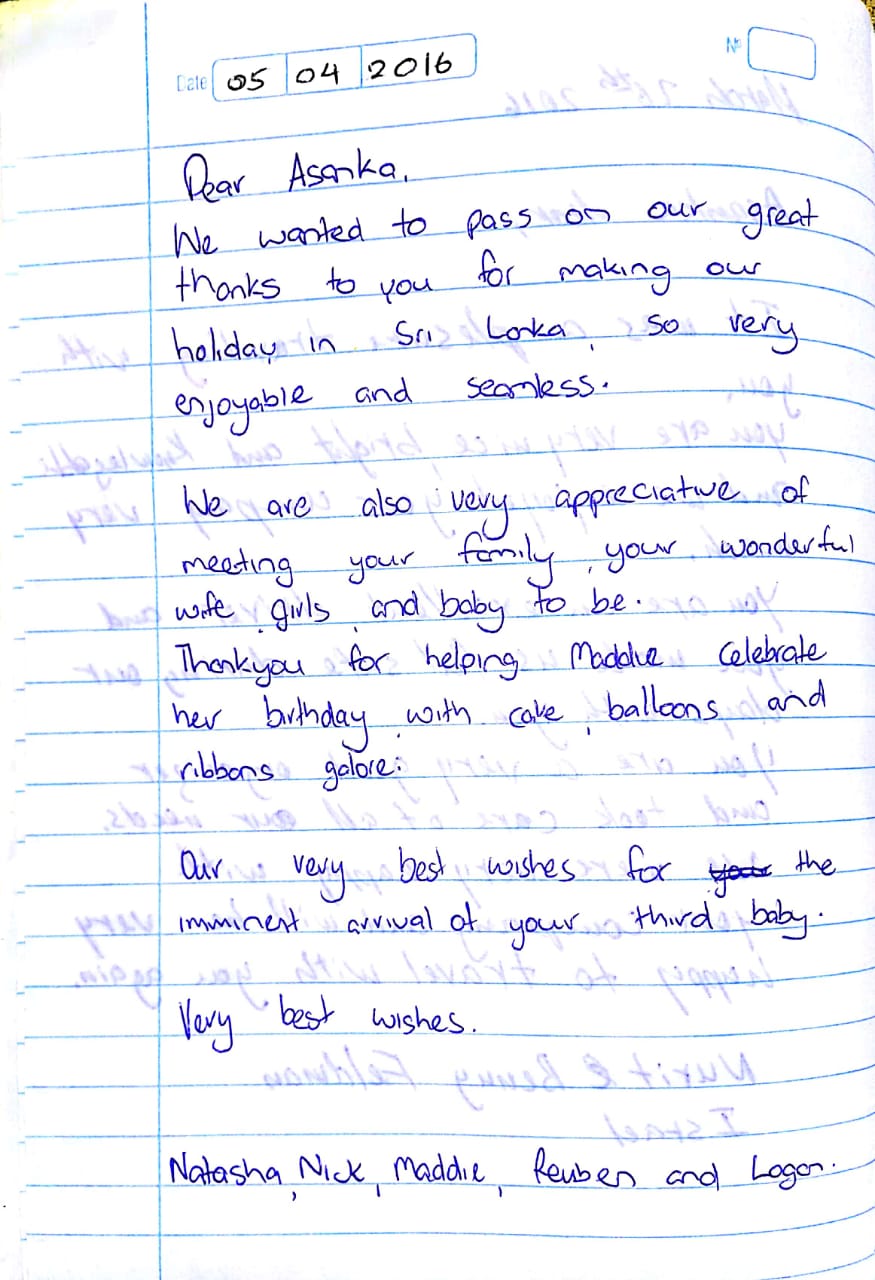 Date 05 04 2016
Nº
Dear Asanka,
We wanted to pass on our great
thanks to you for making our
holiday in Sri Lanka, so very
enjoyable and seamless.
We are also very appreciative of
meeting your family, your wonderful
wife, girls, and baby to be.
Thankyou for helping Maddie celebrate
her birthday with cake, balloons and
ribbons galore!
Our very best wishes for your the
imminent arrival of your third baby.
Very best wishes.
Natasha, Nick, Maddie, Reuben and Logan.